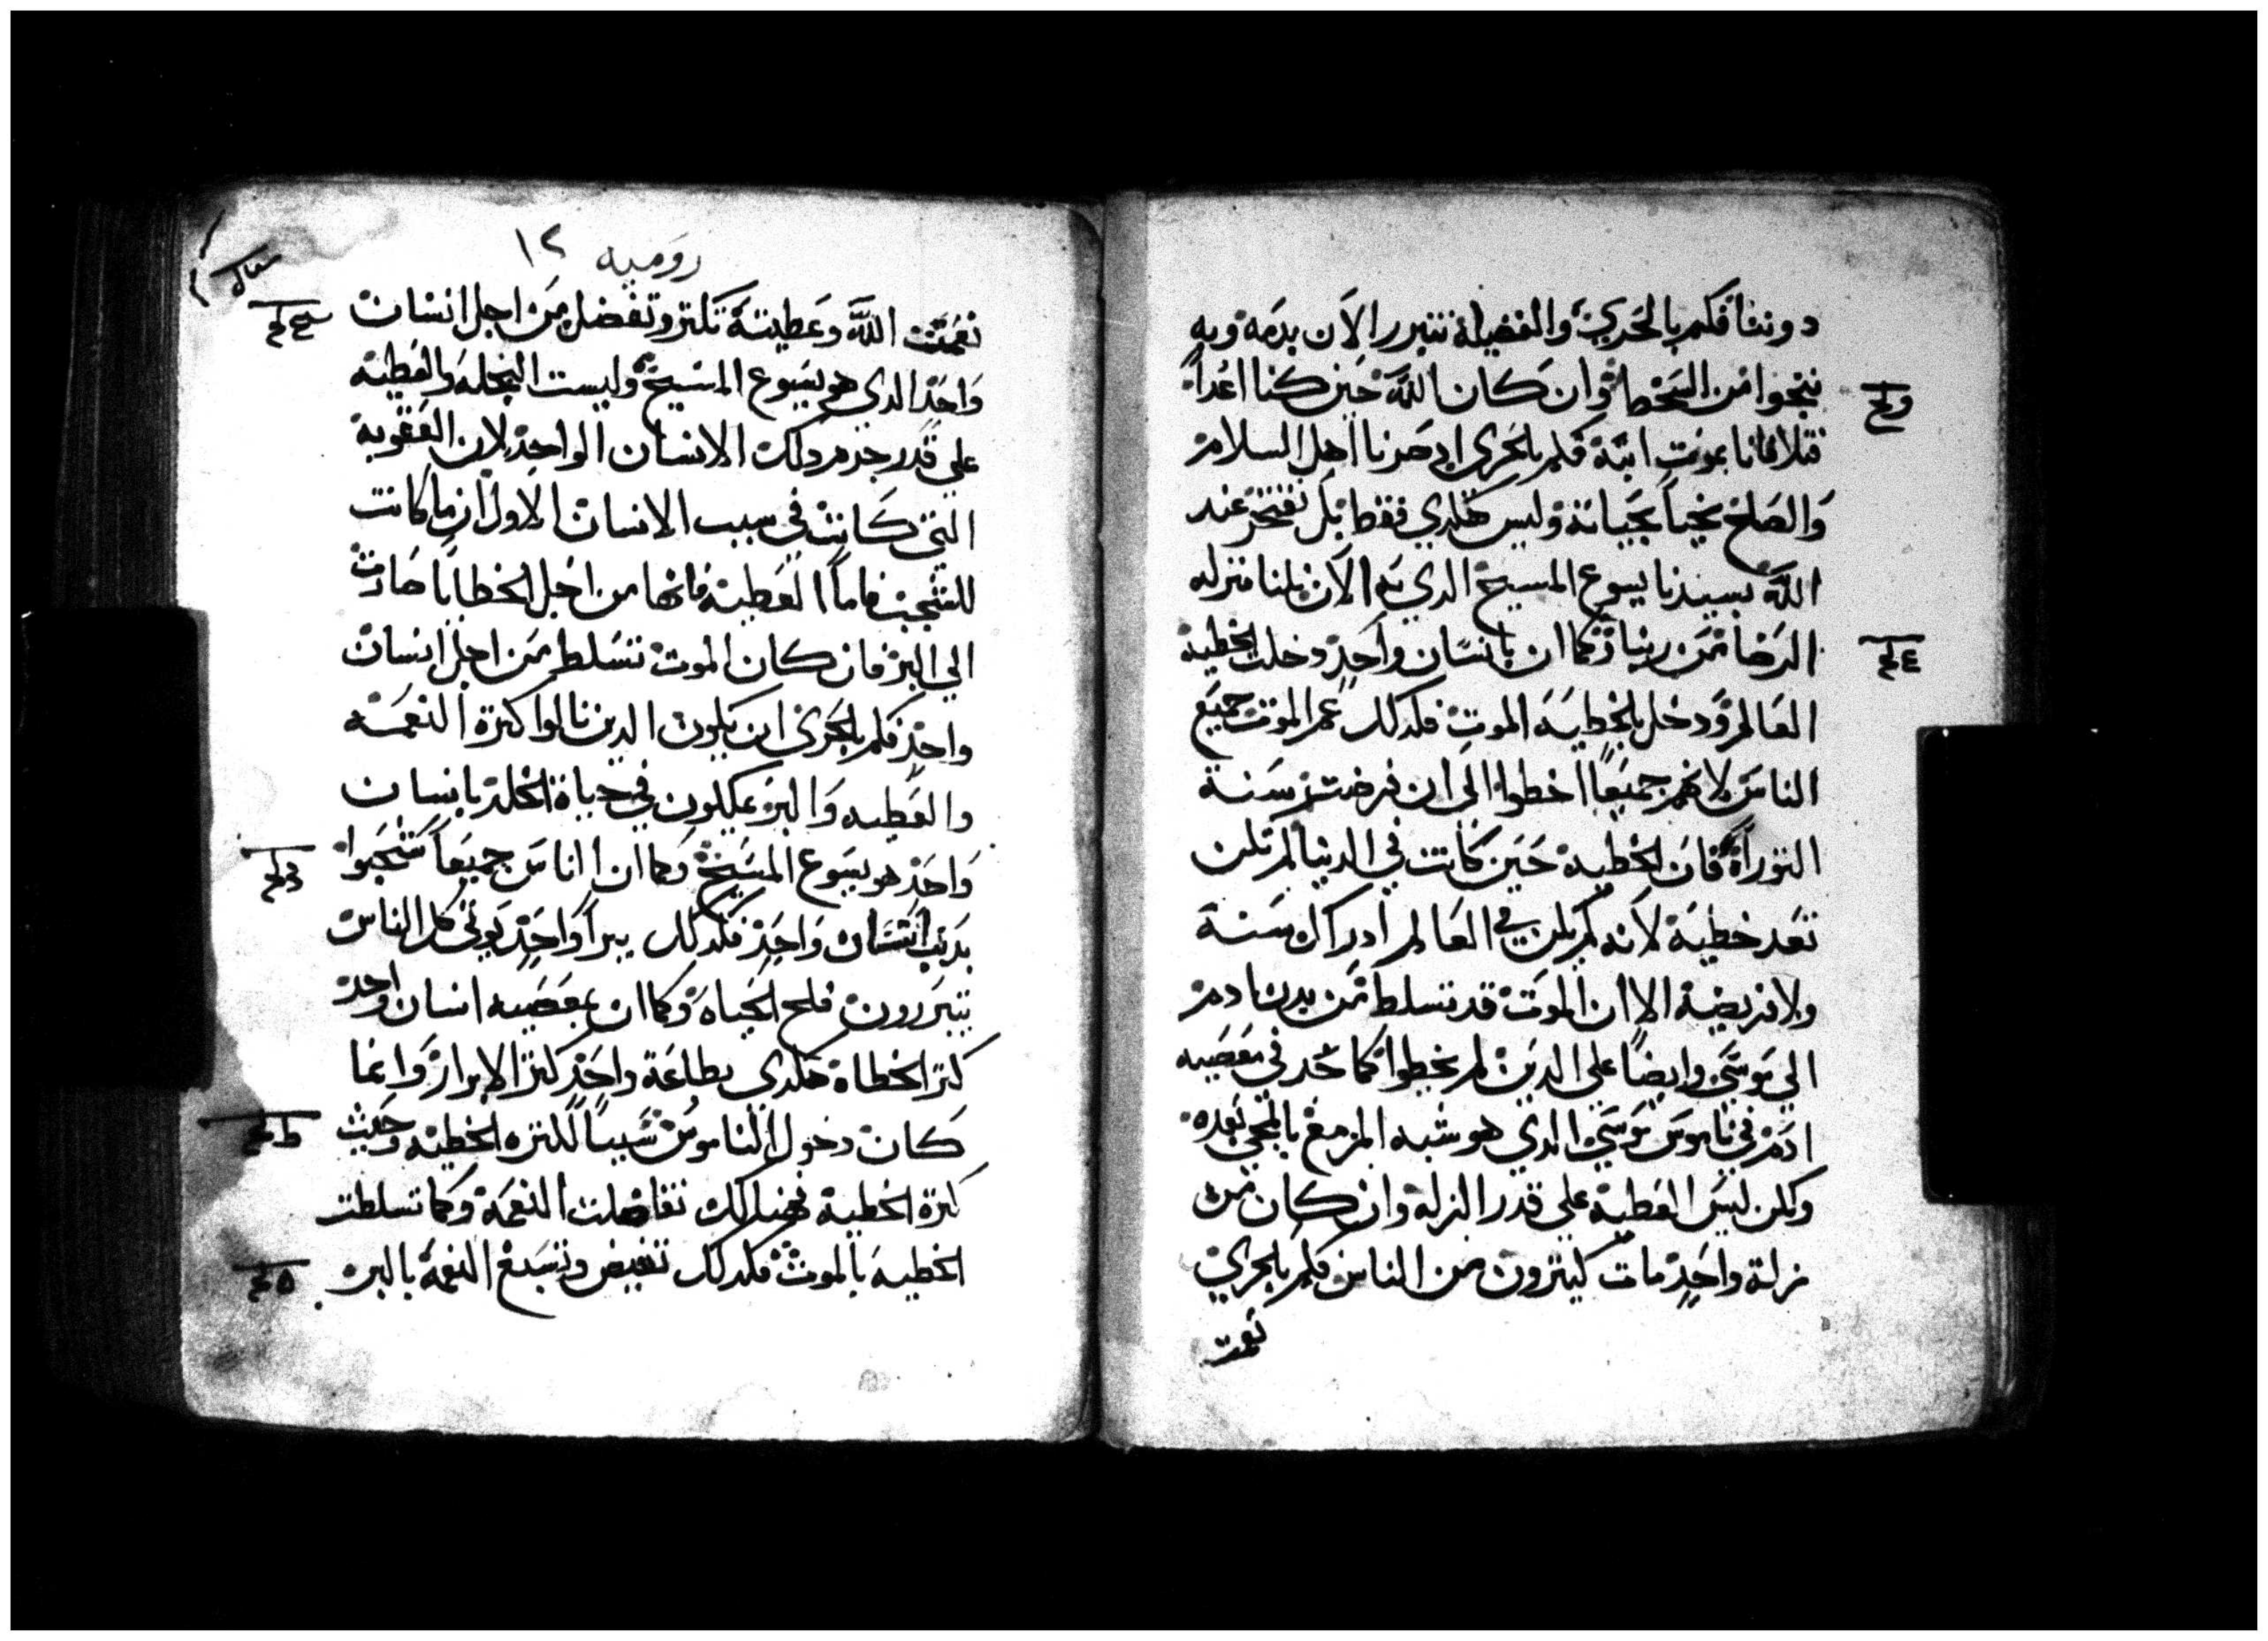 دوننا فكم بالحري والفضيلة نتبرر الان بدمه وبه
ننجوا من السخط وان كان الله حين كنا اعداً
تلافانا بموت ابنه فكم بالحرى اد صرنا اهل السلام
والصلح نحيا بحياته وليس هكدي فقط بل نفتخر عند
الله بسيدنا يسوع المسيح الدي به الان نلنا منزله
الرضا من ربنا وكما ان بانسان واحد دخلت الخطيه
العالم ودخل بالخطيه الموت فكدلك عم الموت جميع
الناس لانهم جميعاً اخطوا الى ان فرضت سنة
التوراة فان الخطية حين كانت في الدنيا لم تكن
تعد خطية لانه لم يكن في العالم ادراك سنة
ولا فريضة الا ان الموت قد تسلط من بدن ادم
الي موسي وايضاً علي الدين لم يخطوا كما حد في معصيه
ادم في ناموس موسي الدي هو شبه المزمع بالمجي بعده
ولكن ليس العطية علي قدر الزلة وان كان من
زلة واحد مات كتيرون من الناس فكم بالحري
نعمت
رومية ١٢
نعمت الله وعطيته تكتر وتفضل من اجل انسان
واحد الدي هو يسوع المسيح وليست النحله والعطيه
علي قدر جرم دلك الانسان الواحد لان العقوبة
التي كانت في سبب الانسان الاول انما كانت
للشجب فاما العطية فانها من اجل الخطايا صارت
الي البر فان كان الموت تسلط من اجل انسان
واحد فكم بالحري ان يكون الدين نالوا كترة النعمة
والعطيه والبر يملكون في حياة الخلد بانسان
واحد هو يسوع المسيح وكما ان الناس جميعاً شجبوا
بدنب انسان واحد فكدلك ببر واحد يوتى كل الناس
يتبررون فلح الحياه وكما ان بمعصيه انسان واحد
كتر الخطاة هكدى بطاعة واحد كتر الابرار وانما
كان دخول الناموس سبباً لكتره الخطية وحيث
كترة الخطية فهنالك تفاضلت النعمة وكما تسلطت
الخطيه بالموت فكدلك تفيض وتسبغ النعمة بالبر